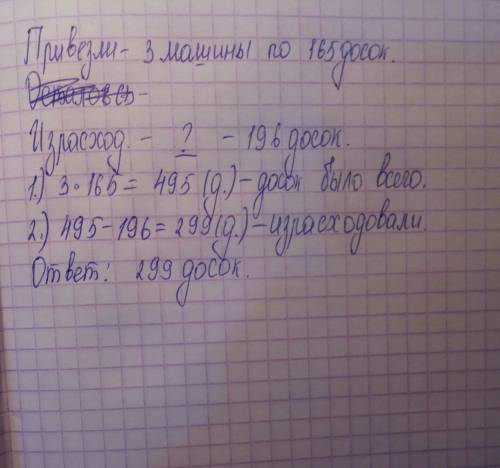 Привезли - 3 машины по 165 досок.
Израсход. - ? - 196 досок.
1.) 3·165 = 495 (д.) - досок было всего.
2.) 495-196 = 299 (д.) - израсходовали.
Ответ: 299 досок.